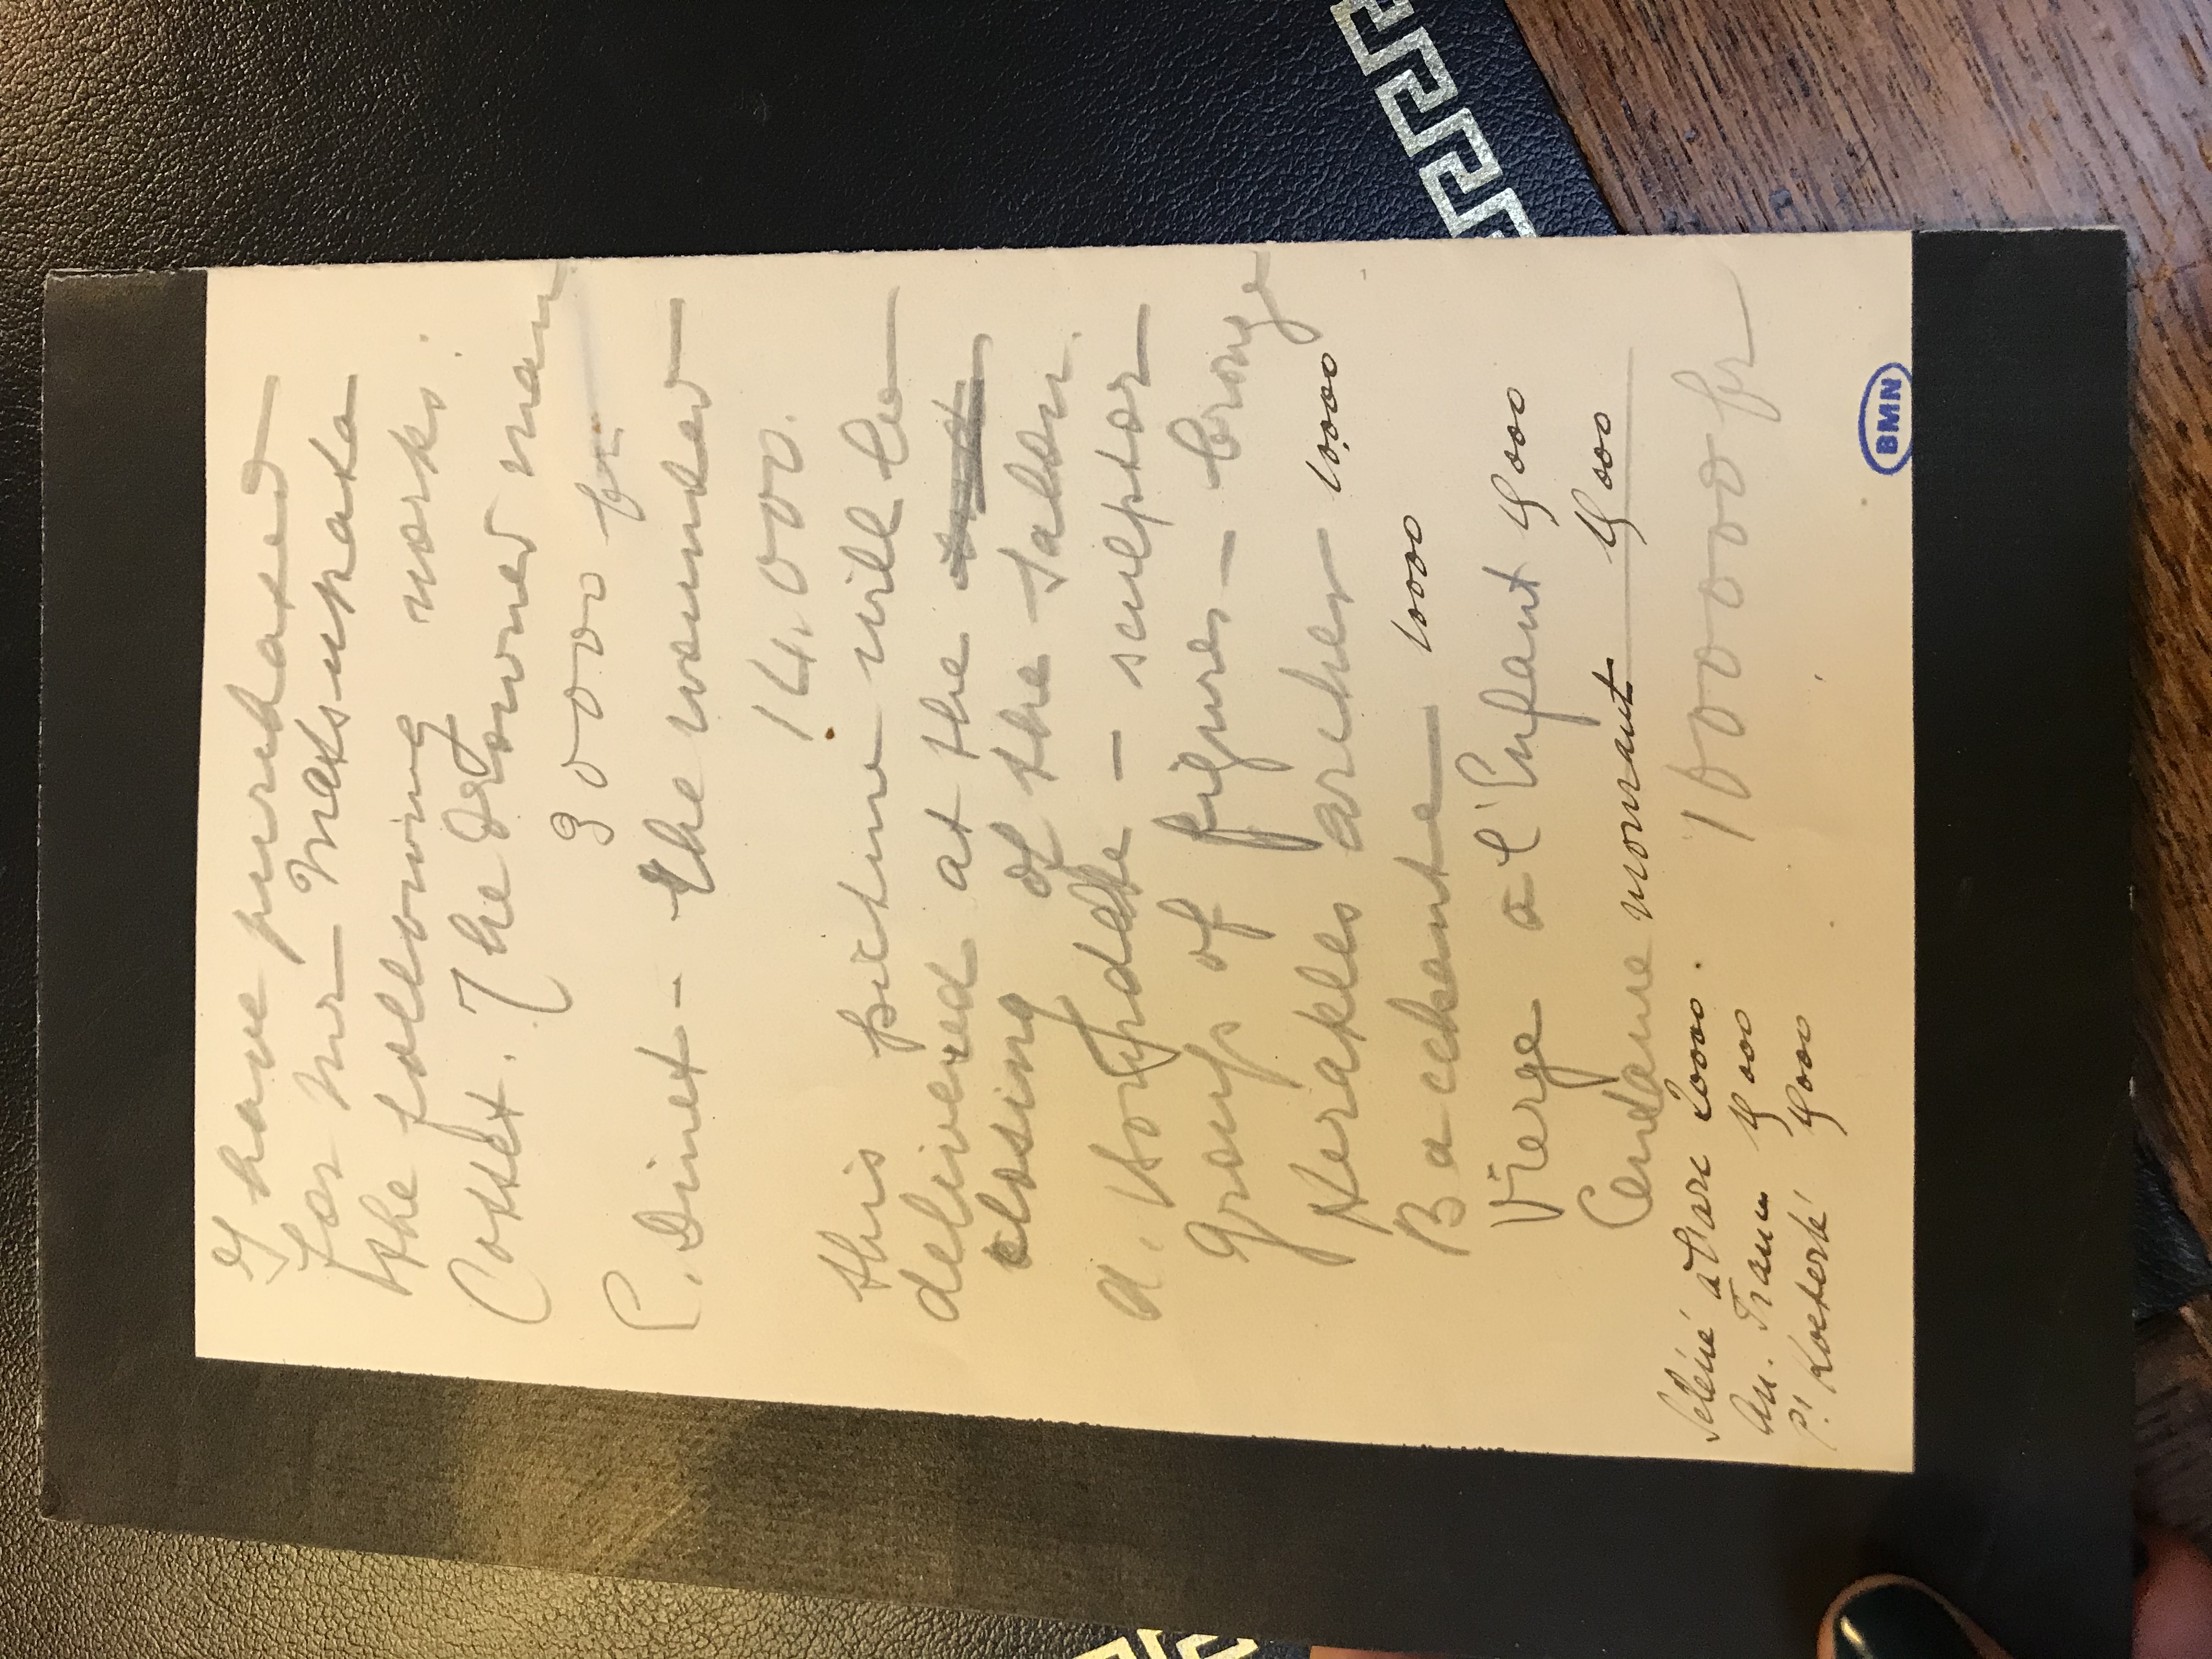 I have purchased
for Mr Matsukata
the following works:
Cottet. The Drowned man
30000 fr
L. Dinet - the wounded
14.000.
this picture will be
delivered at the
closing of the Salon.
A. Bourdelle - sculptor
group of figures - bronze
Herakles archer 10.000
Bacchante 10000
Vierge à l'Enfant 9000
Centaure mourant 9000
100000 fr
Séléné à l'arc 20000.
An. France 9000
Pt Koeberlé 9000
BMN